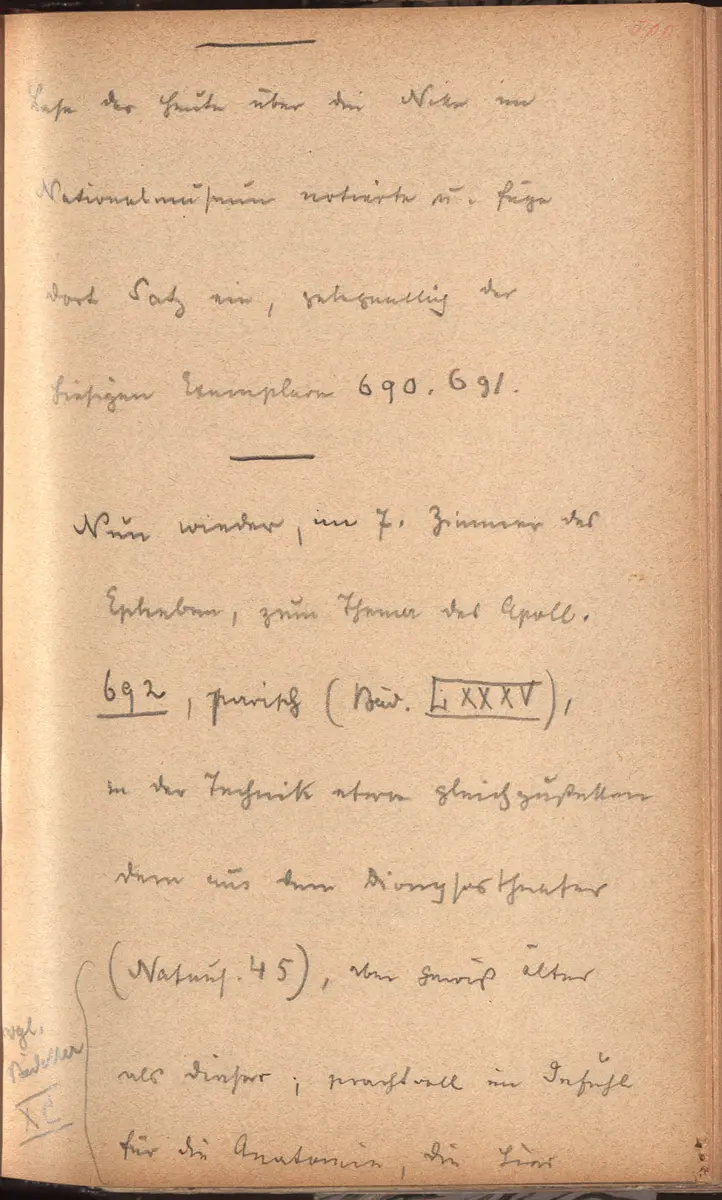 Lese das heute über die Nike im
Nationalmuseum notierte u. füge
dort Satz ein, gelegentlich der
hiesigen Exemplare 690. 691.
Nun wieder, im 7. Zimmer des
Epheben, zum Thema des Apoll.
692, parisch (Bäd. LXXXV),
in der Technik etwa gleichzustellen
dem aus dem Dionysostheater
(Natmus. 45), aber gewiß älter
als dieser; prachtvoll im Gefühl
für die Anatomie, die hier
vgl.
Bädeker